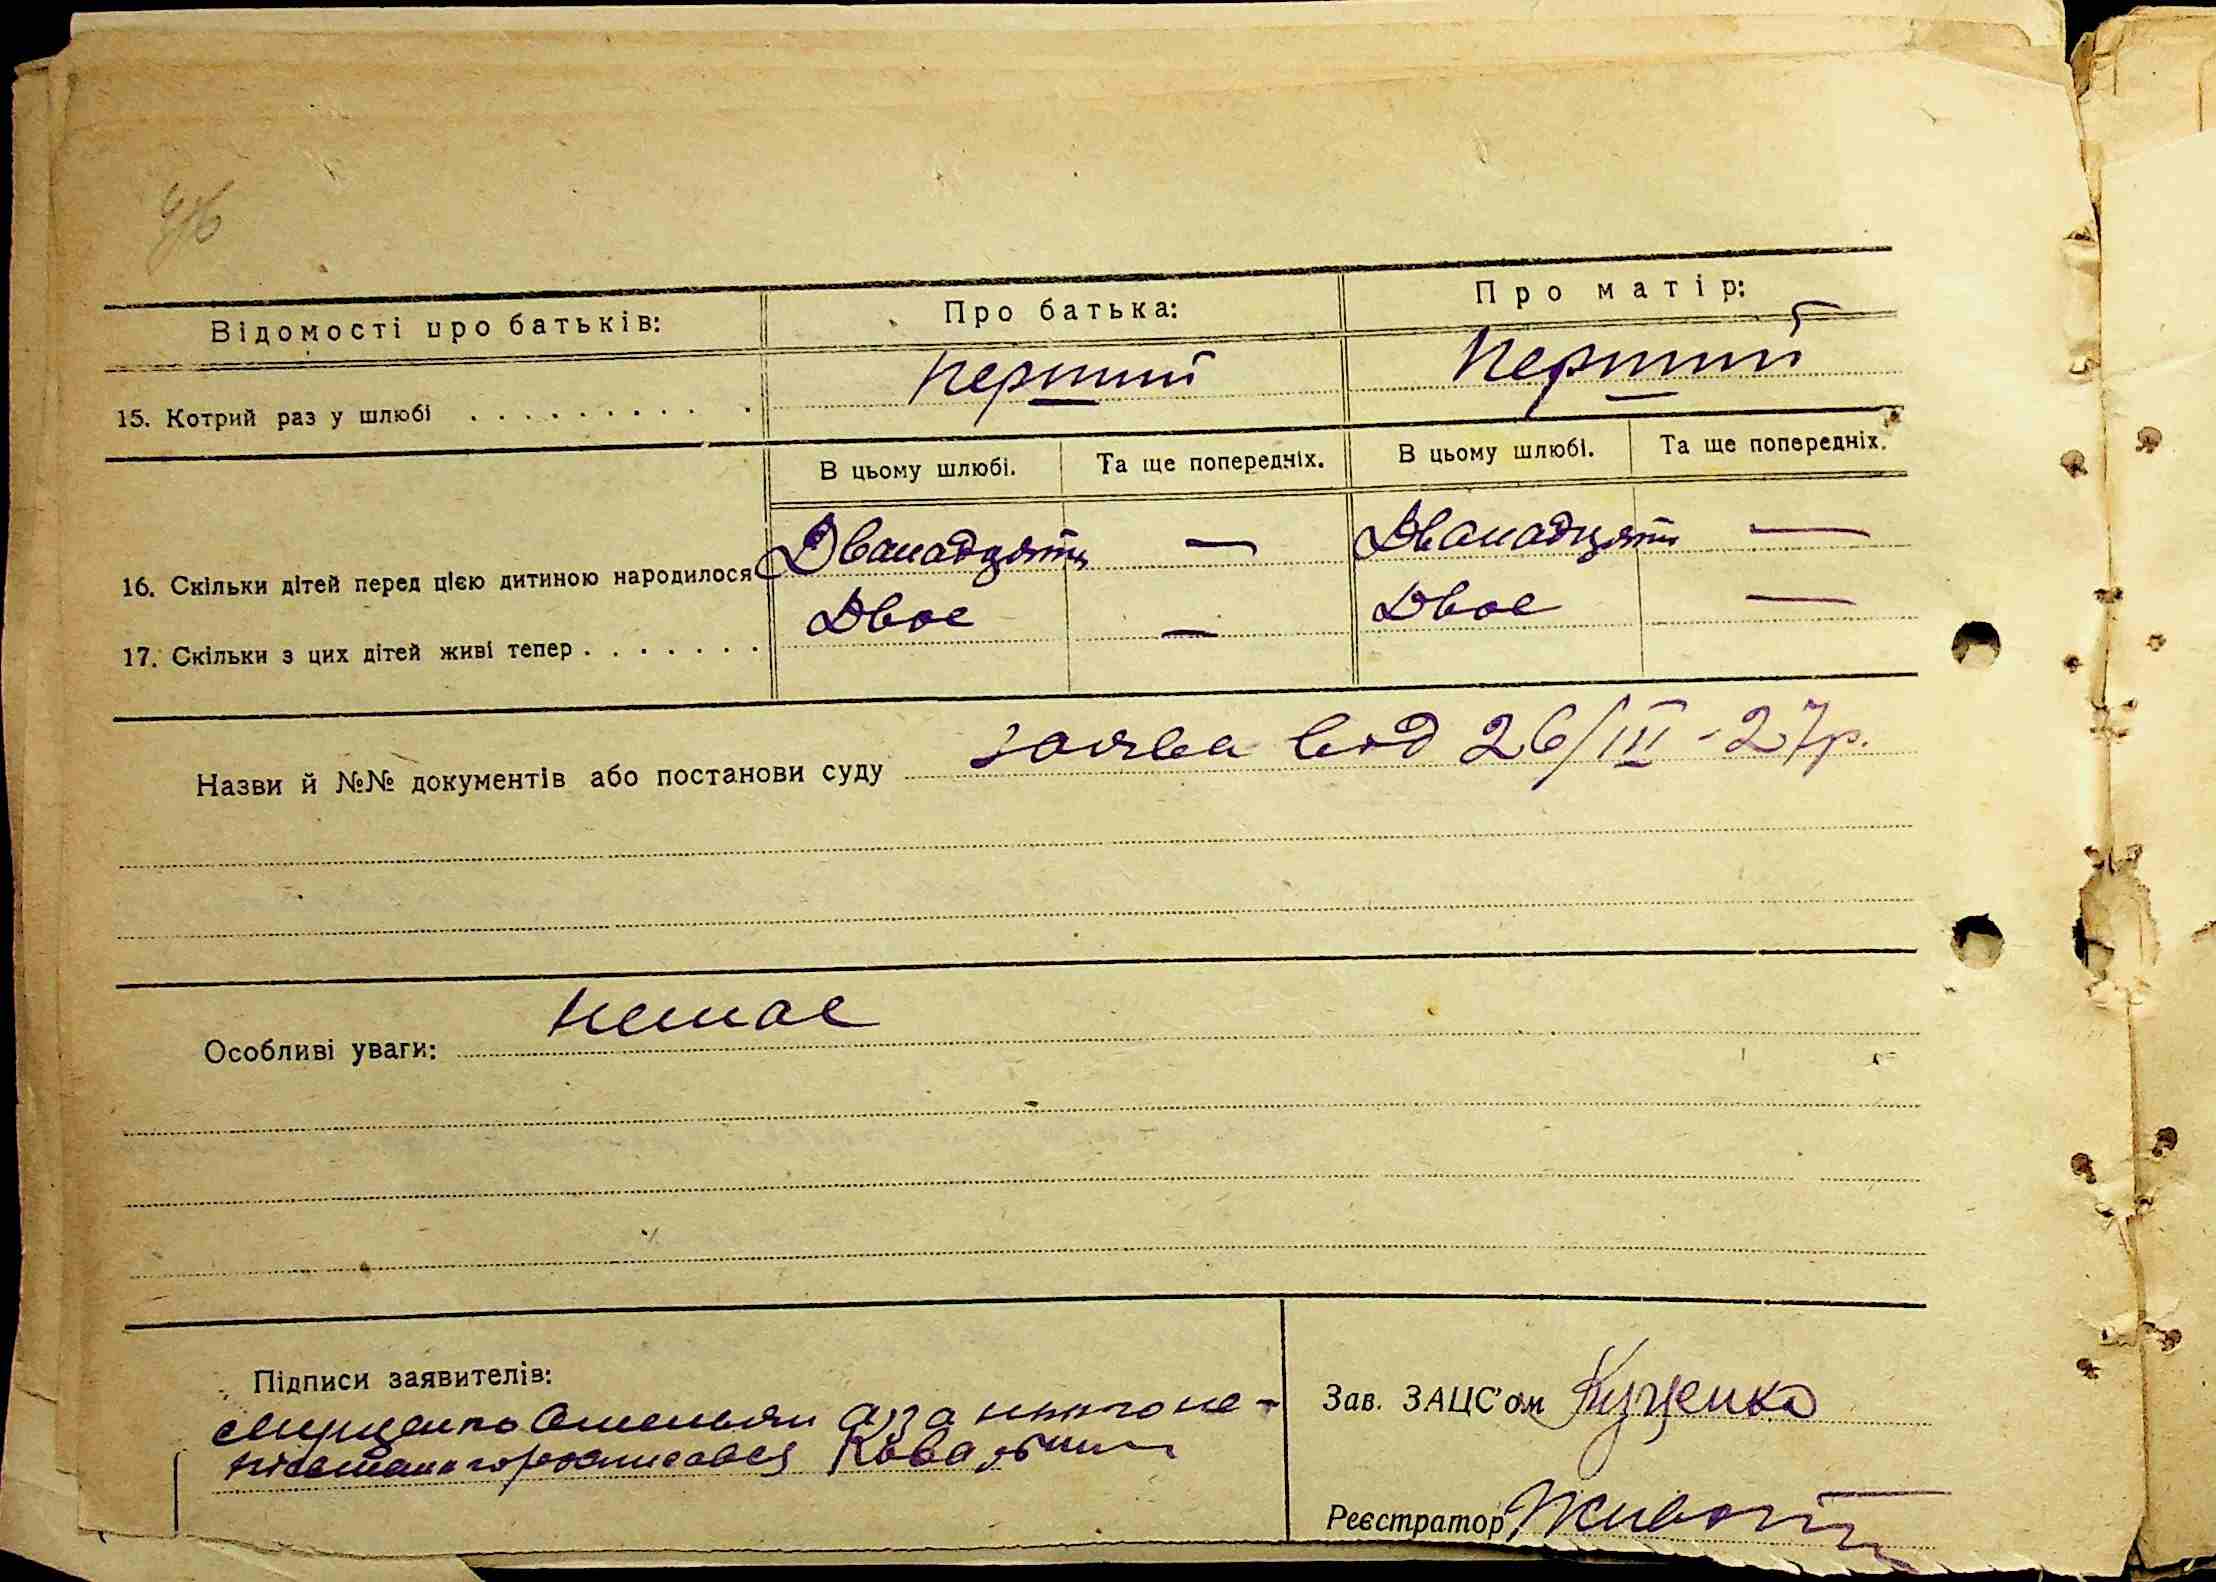 Відомості про батьків: Про батька: Про матір:
15. Котрий раз у шлюбі . . . . . . . . . . Перший Перший
В цьому шлюбі. Та ще попередніх. В цьому шлюбі. Та ще попередніх.
16. Скільки дітей перед цією дитиною народилося Дванадцять — Дванадцять —
17. Скільки з цих дітей живі тепер . . . . . . . Двое — Двое —
Назви й №№ документів або постанови суду заява від 26/III - 27р.
Особливі уваги: немае
Підписи заявителів:
Омельян а за нього не-
письменного росписався
Зав. ЗАЦС'ом Куценко
Реєстратор